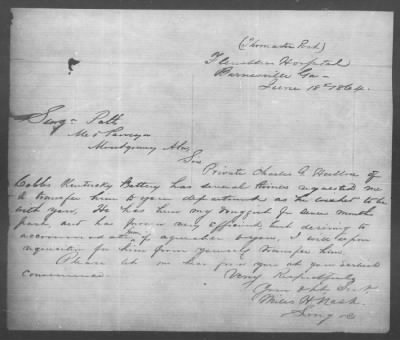 (Thomaston Post)
Flewellen Hospital
Barnesville Ga
June 18th 1864.
Surgn Potts
Med Purveyor
Montgomery Ala
Sir
Private Charles G of
Cobbs Kentucky Battery has several times requested me
to transfer him to your department as he wished to be
with you. He has been my Druggist for some months
past, and has proven very efficient, but desiring to
accommodate him if agreeable to you, I will upon
requisition for him from yourself transfer him.
Please let me hear from you at your earliest
convenience.
Very Respectfully
Your obt Servt
Miles H. Nash
Surg